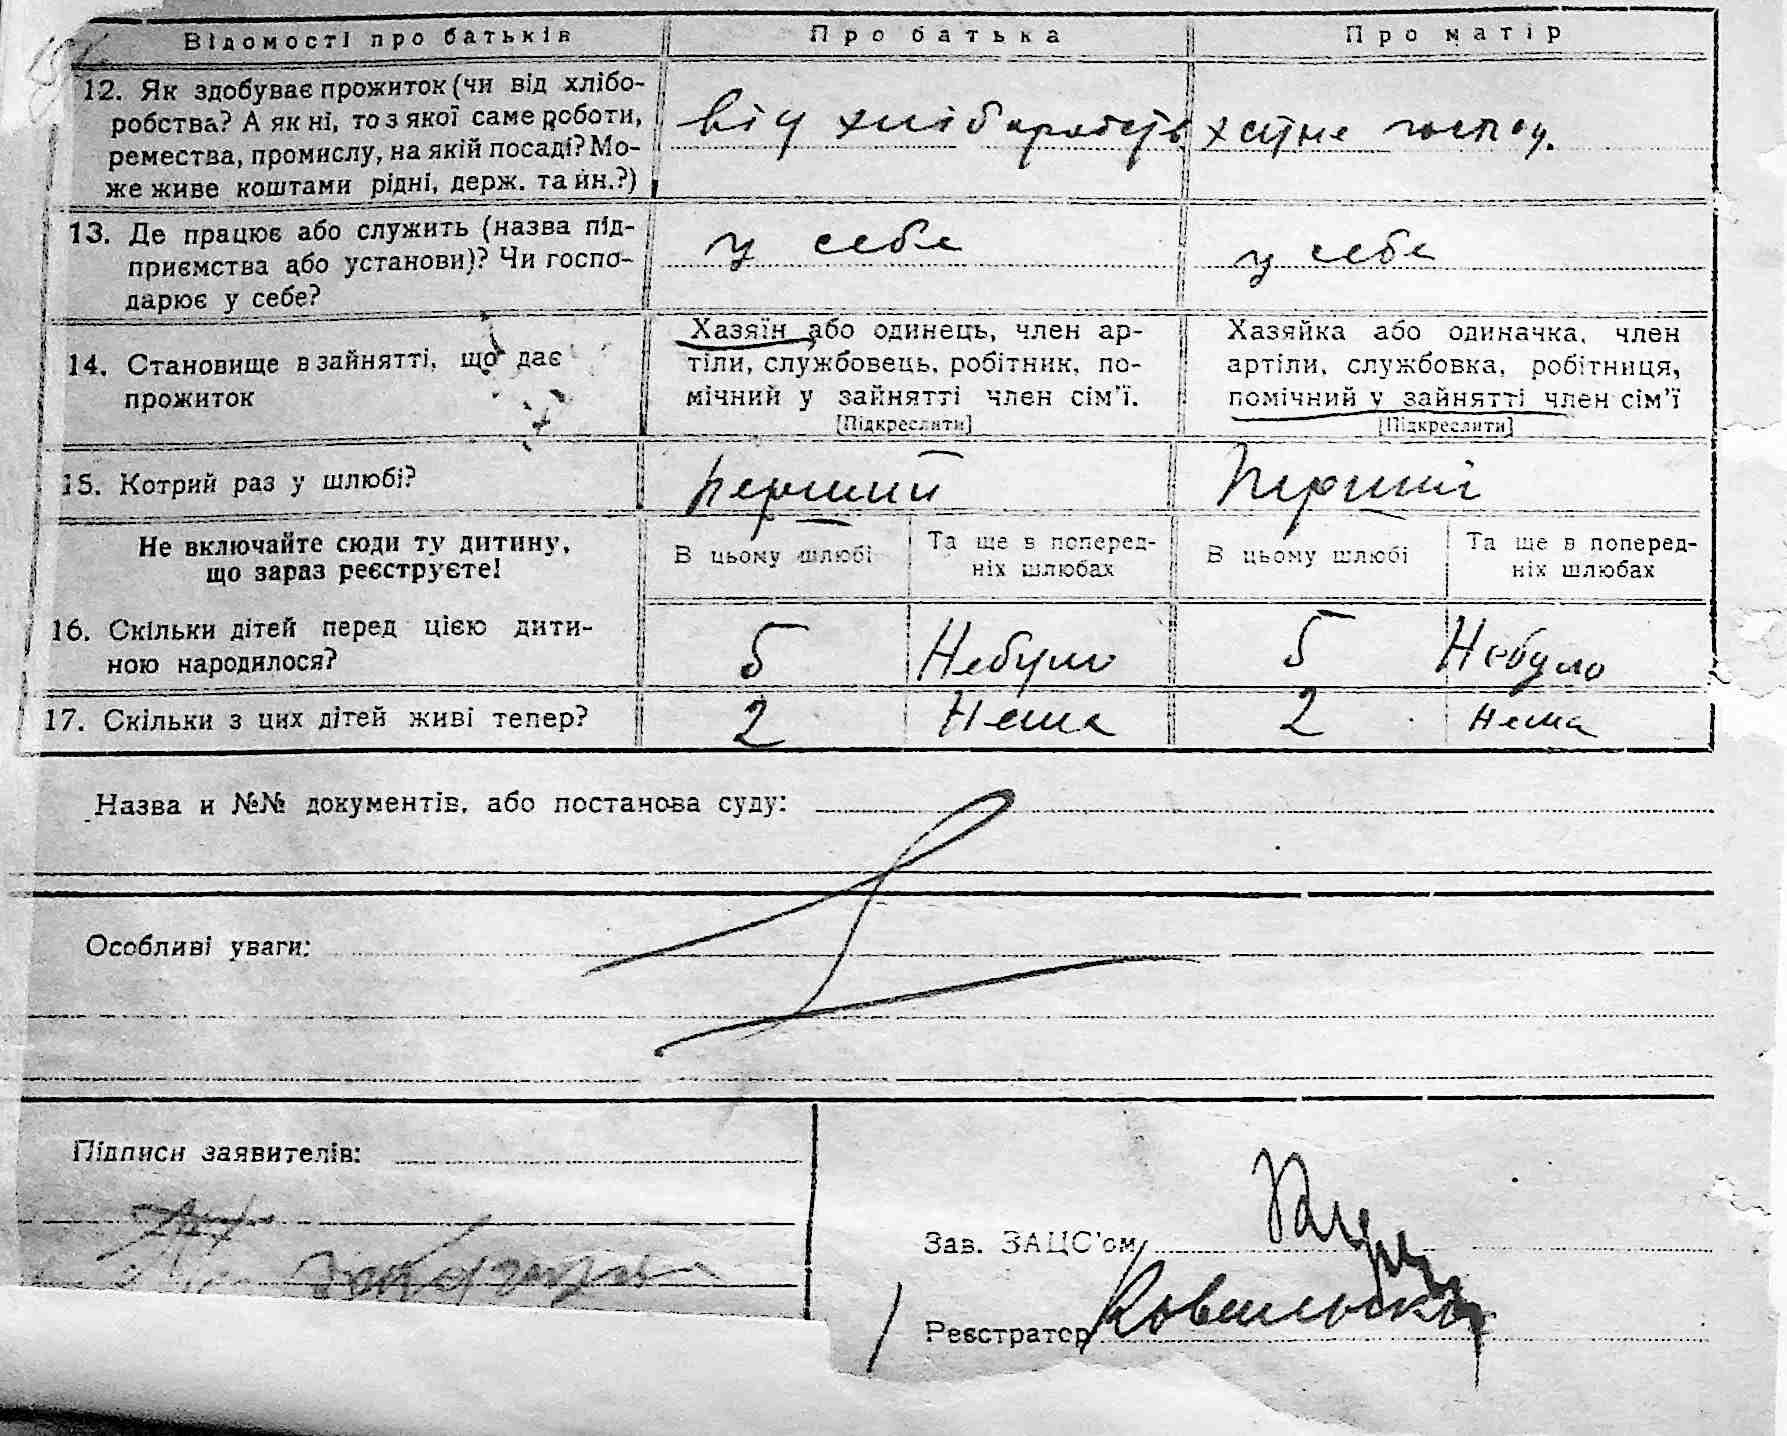 Відомості про батьків Про батька Про матір
12. Як здобуває прожиток (чи від хлібо-
робства? А як ні, то з якої саме роботи,
ремества, промислу, на якій посаді? Мо-
же живе коштами рідні, держ. та йн.?)
від хліборобств. хатне господ.
13. Де працює або служить (назва під-
приємства або установи)? Чи госпо-
дарює у себе?
у себе у себе
14. Становище в зайнятті, що дає
прожиток
Хазяїн або одинець, член ар-
тіли, службовець, робітник, по-
мічний у зайнятті член сім'ї.
[Підкреслити]
Хазяйка або одиначка, член
артіли, службовка, робітниця,
помічний у зайнятті член сім'ї
[Підкреслити]
15. Котрий раз у шлюбі? перший Перший
Не включайте сюди ту дитину,
що зараз реєструєте!
В цьому шлюбі
Та ще в поперед-
ніх шлюбах
В цьому шлюбі
Та ще в поперед-
ніх шлюбах
16. Скільки дітей перед цією дити-
ною народилося?
5 Небуло 5 Небуло
17. Скільки з цих дітей живі тепер? 2 Нема 2 нема
Назва и №№ документів, або постанова суду:
Особливі уваги:
Підписи заявителів:
Зав. ЗАЦС'ом
Реєстратор